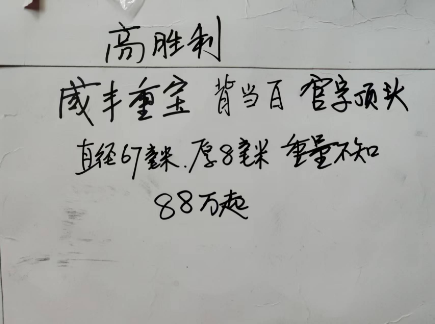 高胜利
咸丰重宝 背当百 官字顶头
直径67毫米.厚8毫米 重量不知
88万起